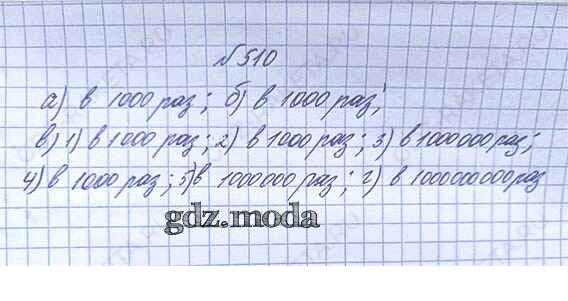 №510
а) в 1000 раз; б) в 1000 раз;
в) 1) в 1000 раз; 2) в 1000 раз; 3) в 1000000 раз;
4) в 1000 раз; 5) в 1000000 раз; г) в 1000000000 раз
gdz.moda